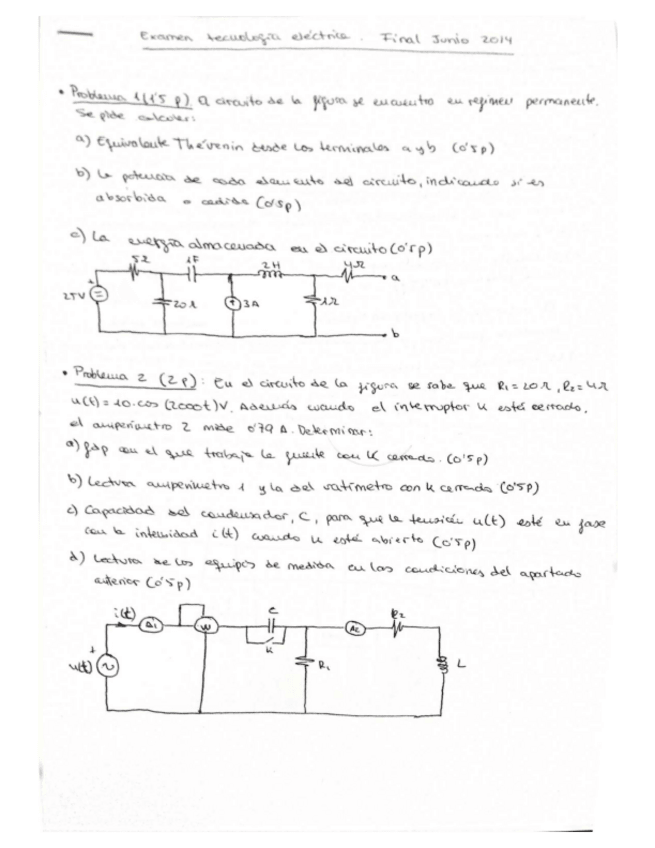 Examen tecnología eléctrica. Final Junio 2014
• Problema 1 (1'5 p). El circuito de la figura se encuentra en régimen permanente.
Se pide calcular:
a) Equivalente Thévenin desde los terminales a y b (0'5p)
b) La potencia de cada elemento del circuito, indicando si es
absorbida o cedida (0'5p)
c) La energía almacenada en el circuito (0'5p)
5Ω 1F 2H 4Ω
a
+
25V 20Ω 3A 1Ω
b
• Problema 2 (2p): En el circuito de la figura se sabe que R1=20Ω, R2=4Ω
u(t)=10·cos(2000t)V. Además cuando el interruptor K está cerrado,
el amperímetro 2 mide 0'79 A. Determinar:
a) fdp con el que trabaja la fuente con K cerrado. (0'5p)
b) Lectura amperímetro 1 y la del vatímetro con K cerrado (0'5p)
c) Capacidad del condensador, C, para que la tensión u(t) esté en fase
con la intensidad i(t) cuando K está abierto (0'5p)
d) Lectura de los equipos de medida en las condiciones del apartado
anterior (0'5p)
i(t) C R2
A1 W A2
K
+
u(t) R1 L